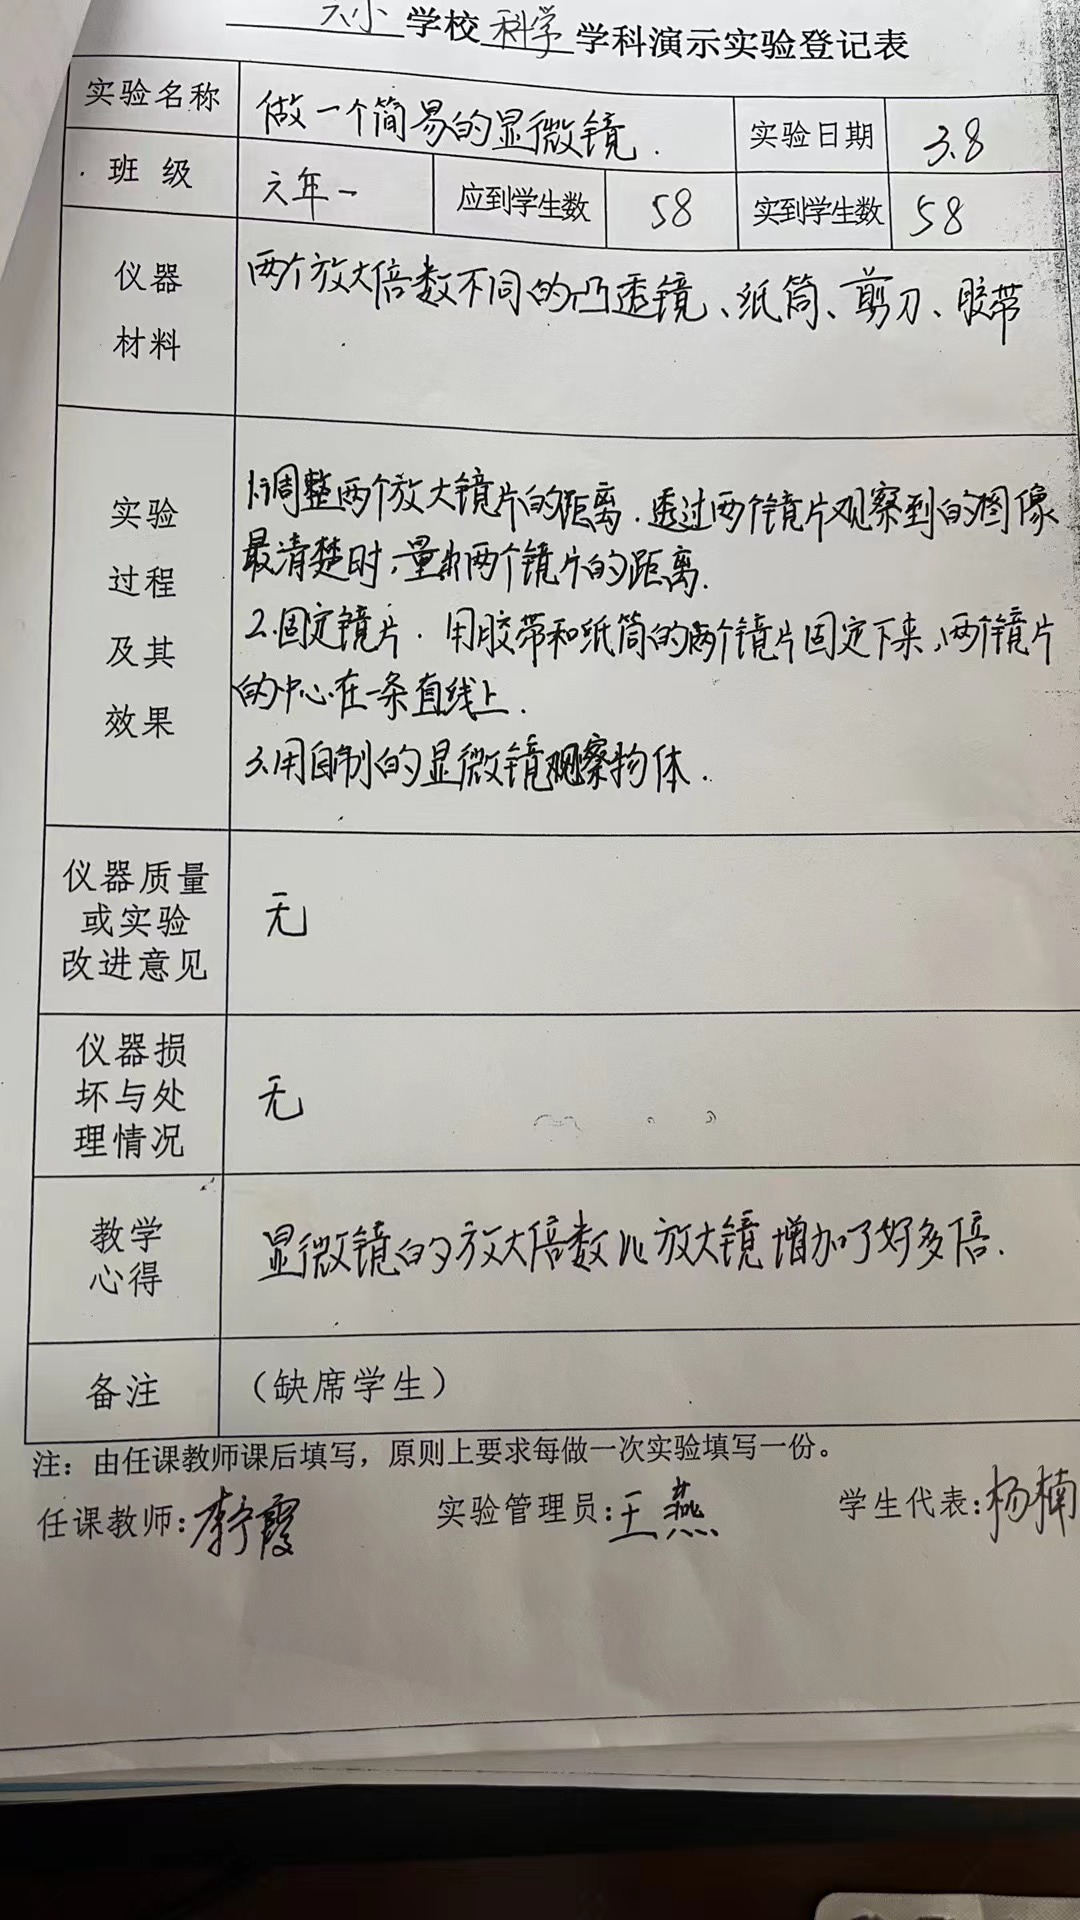 小学校科学学科演示实验登记表
实验名称 做一个简易的显微镜. 实验日期 3.8
班级 六年一 应到学生数 58 实到学生数 58
仪器
材料
两个放大倍数不同的凸透镜、纸筒、剪刀、胶带
实验
过程
及其
效果
1.调整两个放大镜片的距离.透过两个镜片观察到的图像
最清楚时,量出两个镜片的距离.
2.固定镜片.用胶带和纸筒的两个镜片固定下来,两个镜片
的中心在一条直线上.
3.用自制的显微镜观察物体.
仪器质量
或实验
改进意见
无
仪器损
坏与处
理情况
无
教学
心得
显微镜的放大倍数比放大镜增加了好多倍.
备注 （缺席学生）
注：由任课教师课后填写，原则上要求每做一次实验填写一份。
任课教师:李霞 实验管理员:王燕 学生代表:杨楠